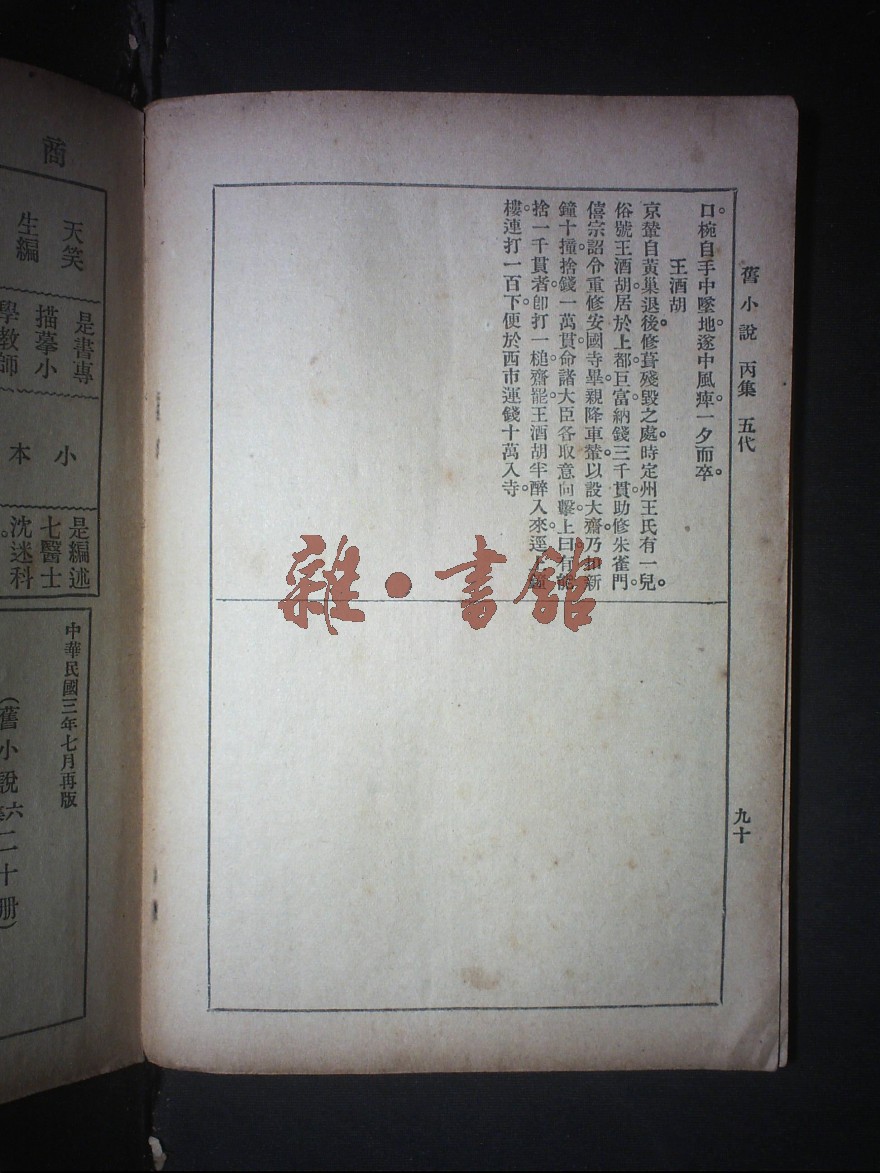 舊小說 丙集 五代
九十
口。椀自手中墜地。遂中風痺。一夕而卒。
王酒胡
京輦自黃巢退後。修葺殘毀之處。時定州王氏有一兒。
俗號王酒胡。居於上都。巨富。納錢三千貫。助修朱雀門。
僖宗詔令重修安國寺畢。親降車輦。以設大齋。乃扣新
鐘十撞。捨錢一萬貫。命諸大臣各取意向擊。上曰。有能
捨一千貫者。卽打一槌。齋罷。王酒胡半醉入來。逕上鐘
樓。連打一百下。便於西市運錢十萬入寺。
雜·書館
商
天笑
生編
是書專
描摹小
學教師
小
本
是編述
七醫士
沈迷科
中華民國三年七月再版
(舊小說六集二十册)